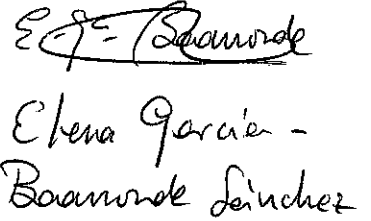 E. Gª Baamonde
Elena García -
Baamonde Sánchez